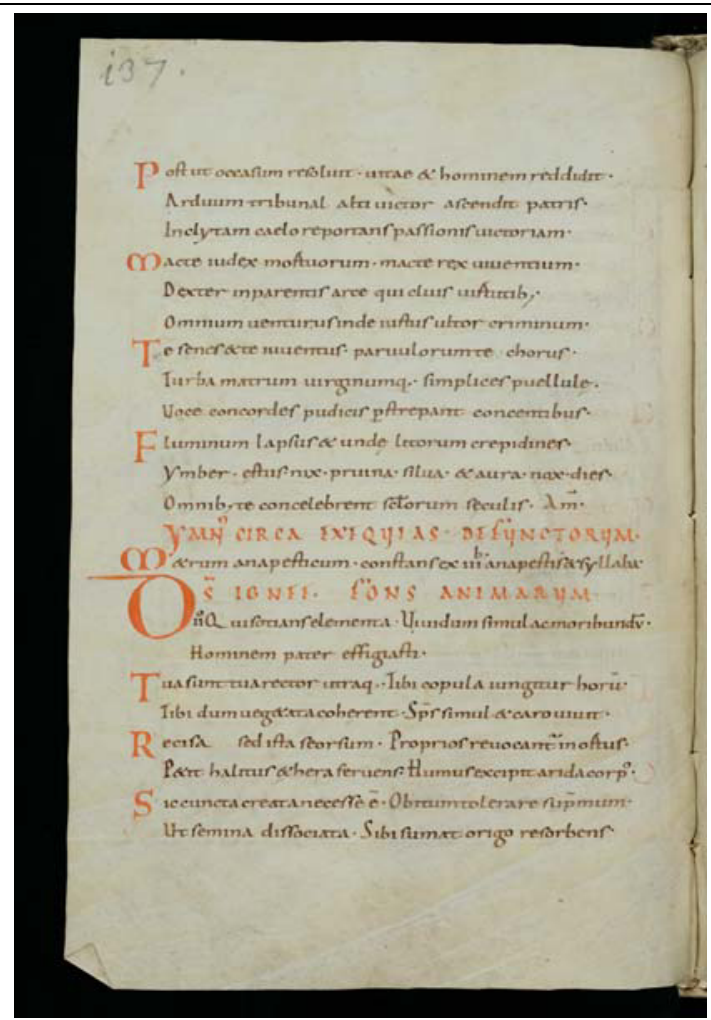 137.
Post ut occasum resoluit · uitae & hominem reddidit ·
Arduum tribunal alti uictor ascendit patris ·
Inclytam caelo reportans passionis uictoriam ·
Macte iudex mortuorum · macte rex uiuentium ·
Dexter in parentis arce qui cluis uirtutib; ·
Omnium uenturus inde iustus ultor criminum ·
Te senes & te iuuentus · paruulorum te chorus ·
Turba matrum uirginumq · simplices puellule ·
Uoce concordes pudicis pstrepant concentibus ·
Fluminum lapsus & unde litorum crepidines ·
Ymber · estus nix · pruina · silua · & aura · nox · dies ·
Omnib; te concelebrent sclorum seculis · Am̄ ·
YMN̉ CIRCA EXEQUIAS · DEFUNCTORUM ·
M&rum anapesticum · constans ex anapestis & syllaba ·
DS̄ IGNEE · FONS ANIMARUM
Quisotians elementa · Uiuidum simul ac moribundū ·
Hominem pater effigiasti ·
Tua sunt tua rector utraq · Tibi copula iungitur horū ·
Tibi dum ueg&ata coherent · Sps̄ simul & caro uiuit ·
Recisa sed ista seorsum · Proprios reuocant in ortus ·
P&it halitus & hera feruens · Humus excipit arida corp̉ ·
Sic cuncta creata necesse ē · Obitum tolerare sup̄mum ·
Ut semina dissociata · Sibi sumat origo resorbens ·